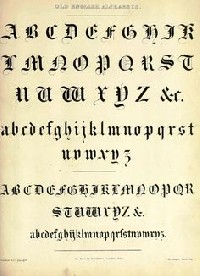 OLD ENGLISH ALPHABETS.
A B C D E F G H I K
L M N O P Q R S T
U V W X Y Z & &c.
abcdefghijklmnopqrst
uvwxyz
ABCDEFGHIKLMNOPQR
STUVWXYZ&.
abcdefghijklmnopqrstuvwxyz.